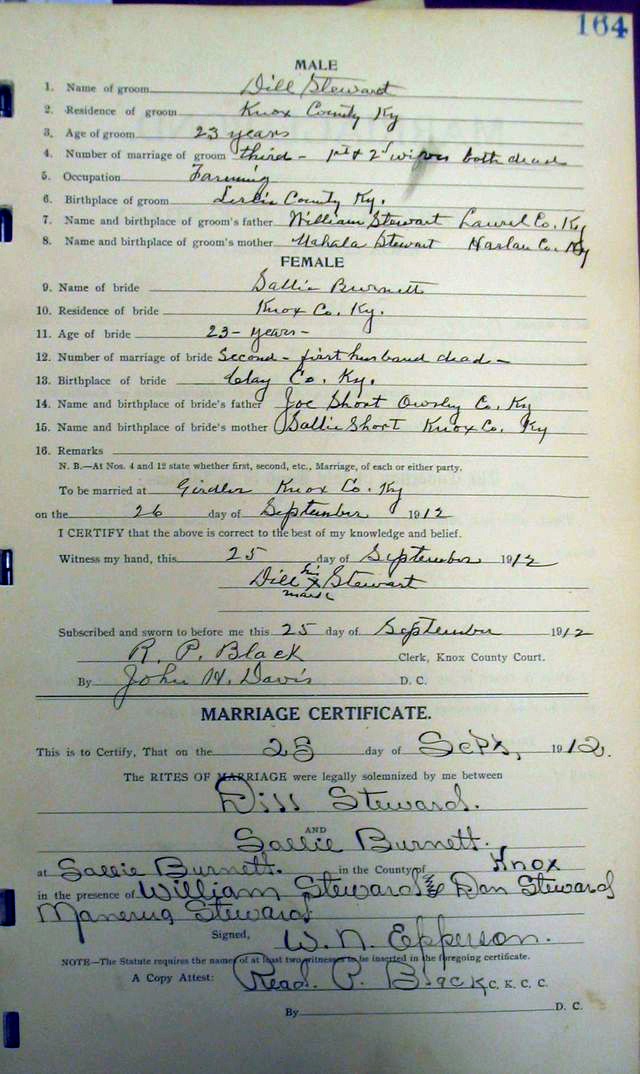 164
MALE
1. Name of groom Dill Stewart
2. Residence of groom Knox County Ky
3. Age of groom 23 years
4. Number of marriage of groom third - 1st & 2d wives both dead
5. Occupation Farming
6. Birthplace of groom Leslie County Ky.
7. Name and birthplace of groom's father William Stewart Laurel Co. Ky
8. Name and birthplace of groom's mother Mahala Stewart Harlan Co. Ky
FEMALE
9. Name of bride Sallie Burnett
10. Residence of bride Knox Co. Ky.
11. Age of bride 23 - years -
12. Number of marriage of bride Second - first husband dead -
13. Birthplace of bride Clay Co. Ky.
14. Name and birthplace of bride's father Joe Short Owsley Co. Ky
15. Name and birthplace of bride's mother Sallie Short Knox Co. Ky
16. Remarks
N. B.—At Nos. 4 and 12 state whether first, second, etc., Marriage, of each or either party.
To be married at Girdler Knox Co. Ky
on the 26 day of September 1912
I CERTIFY that the above is correct to the best of my knowledge and belief.
Witness my hand, this 25 day of September 1912
his
Dill X Stewart
mark
Subscribed and sworn to before me this 25 day of September 1912
R. P. Black Clerk, Knox County Court.
By John H. Davis D. C.
MARRIAGE CERTIFICATE.
This is to Certify, That on the day of Sept, 1912.
The RITES OF MARRIAGE were legally solemnized by me between
Dill Steward.
AND
Sallie Burnett.
at Sallie Burnett. in the County of Knox
in the presence of William Steward & Dan Steward
Steward
Signed, W. N. Epperson.
NOTE—The Statute requires the names of at least two witnesses to be inserted in the foregoing certificate.
A Copy Attest: Read. P. Black C. K. C. C.
By D. C.